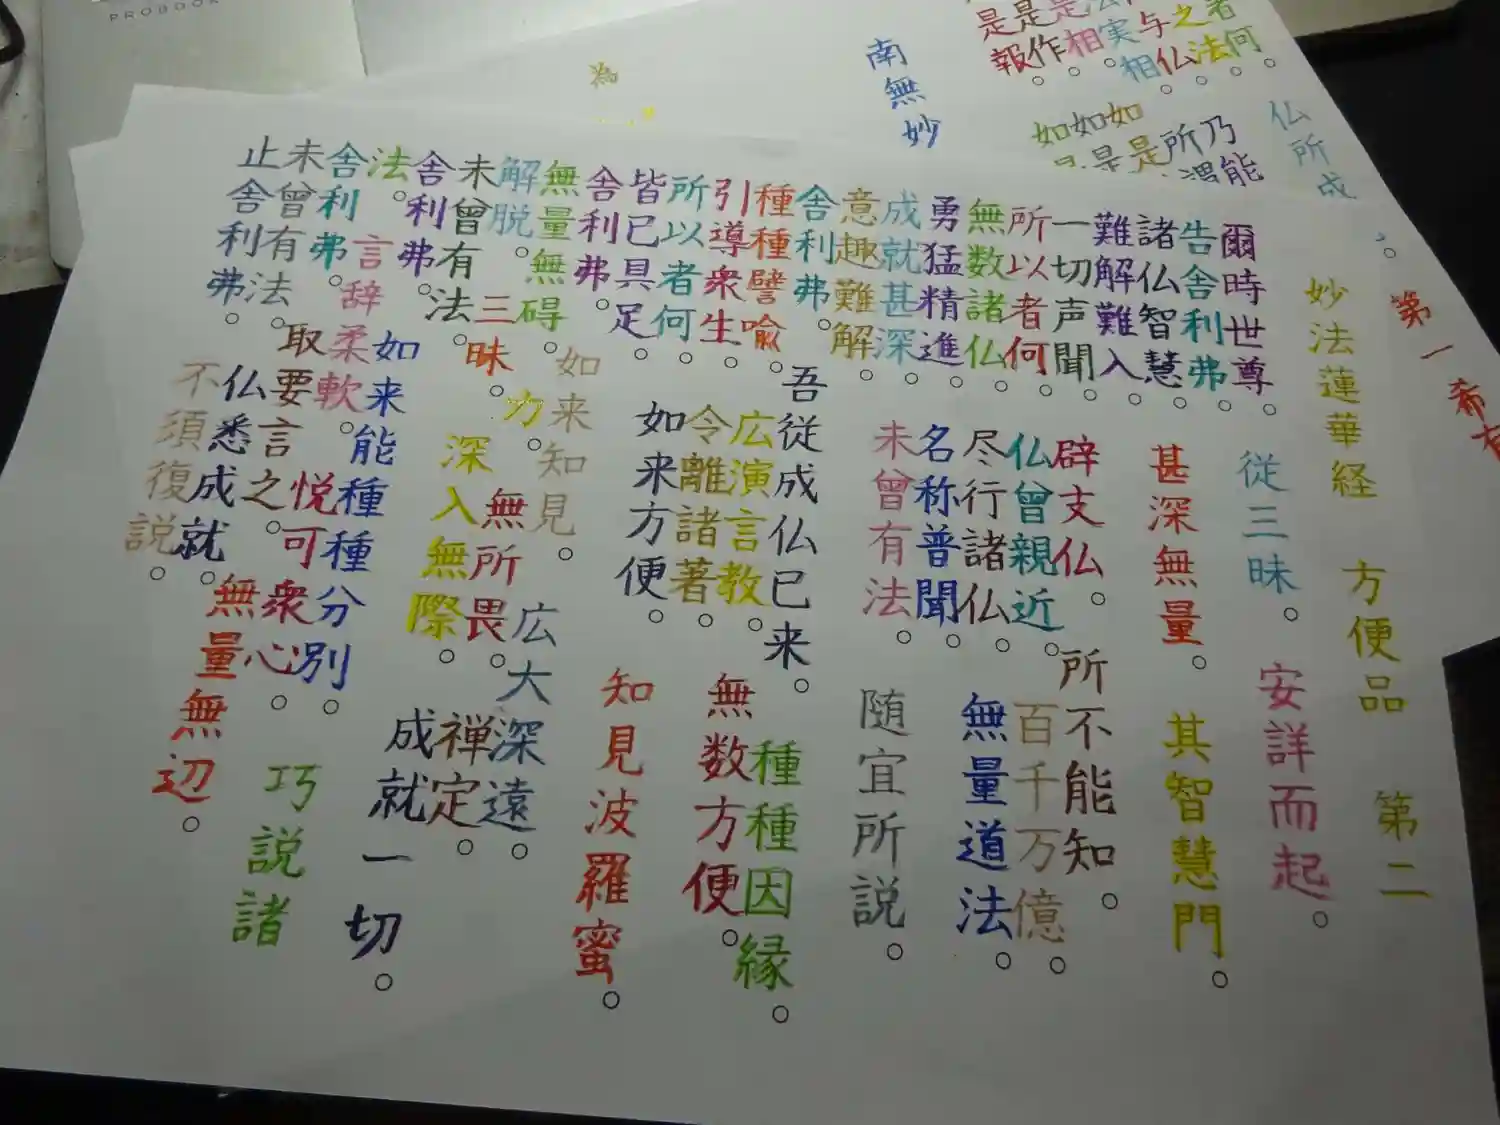 PROBOOK
為
南無妙
仏所成
第一希有
妙法蓮華経 方便品 第二
爾時世尊。従三昧。安詳而起。
告舎利弗。
諸仏智慧。甚深無量。其智慧門。
難解難入。
一切声聞。辟支仏。所不能知。
所以者何。仏曾親近。百千万億。
無数諸仏。尽行諸仏。無量道法。
勇猛精進。名称普聞。
成就甚深。未曾有法。随宜所説。
意趣難解。
舎利弗。吾従成仏已来。種種因縁。
種種譬喩。広演言教。無数方便。
引導衆生。令離諸著。
所以者何。如来方便。知見波羅蜜。
皆已具足。
舎利弗。如来知見。広大深遠。
無量無碍。力。無所畏。禅定。
解脱。三昧。深入無際。成就一切。
未曾有法。
舎利弗。如来能種種分別。巧説諸
法。言辞柔軟。悦可衆心。
舎利弗。取要言之。無量無辺。
未曾有法。仏悉成就。
止舎利弗。不須復説。
者何。
之法。
与仏。
実相。
是相。
是作。
是報。
乃能
所
如是
如是
如